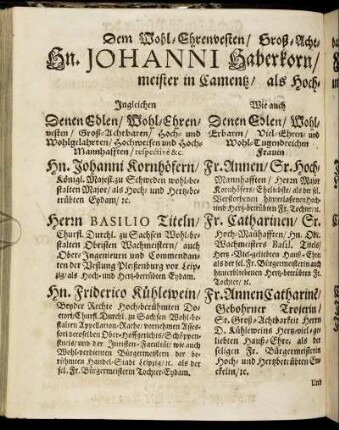 Dem Wohl-Ehrenvesten/ Groß-Acht-
Hn. JOHANNI Haberkorn/
meister in Camentz/ als Hoch-
Ingleichen
Denen Edlen/ Wohl-Ehren-
vesten/ Groß-Achtbaren/ Hoch- und
Wohlgelahrten/ Hochweisen und Hoch-
Mannhafften/ respectivè &c.
Hn. Johanni Kornhöfern/
Königl. Majest. zu Schweden wohlbe-
stalten Major/ als Hoch- und Hertzbe-
trübten Eydam/ ꝛc.
Herrn BASILIO Titeln/
Churfl. Durchl. zu Sachsen Wohlbe-
stalten Obristen Wachmeistern/ auch
Ober-Ingenieurn und Commendan-
ten der Vestung Pleißenburg vor Leip-
zig/ als Hoch- und Hertzbetrübten Eydam.
Hn. Friderico Kühlewein/
Beyder Rechte Hochberühmten Do-
ctori/ Churfl. Durchl. zu Sachsen Wohlbe-
stalten Appellation-Rathe/ vornehmen Assesso-
ri deroselben Ober-Hoffgerichts/ Schöppen-
stuels/ und der Juristen-Facultät/ wie auch
Wohl-verdienten Bürgermeistern der be-
rühmten Handel-Stadt Leipzig/ ꝛc. als der
sel. Fr. Bürgermeisterin Tochter-Eydam.
Wie auch
Denen Edlen/ Wohl-
Erbaren/ Viel-Ehren- und
Wohl-Tugendreichen
Frauen
Fr. Annen/ Sr. Hoch-
Mannhafften/ Herrn Major
Kornhöfers/ Eheliebste/ als der sel.
Verstorbenen hinterlassenen Hoch-
und Hertzbetrübten Fr. Tochter/ ꝛc.
Fr. Catharinen/ Sr.
Hoch-Mañhafften/ Hn. Ob.
Wachmeisters Basil. Titels/
Hertz-Viel-geliebten Hauß-Ehre/
als der sel. Fr. Bürgermeisterin auch
hinterbliebenen Hertz-betrübten Fr.
Tochter/ ꝛc.
Fr. Annen Catharin/
Gebohrner Troserin/
Sr. Groß-Achtbarkeit Herrn
D. Kühleweins Hertz-viel-ge-
liebten Hauß-Ehre/ als der
seligen Fr. Bürgermeisterin
Hoch- und Hertzbetrübten En-
ckelin/ ꝛc.
Und